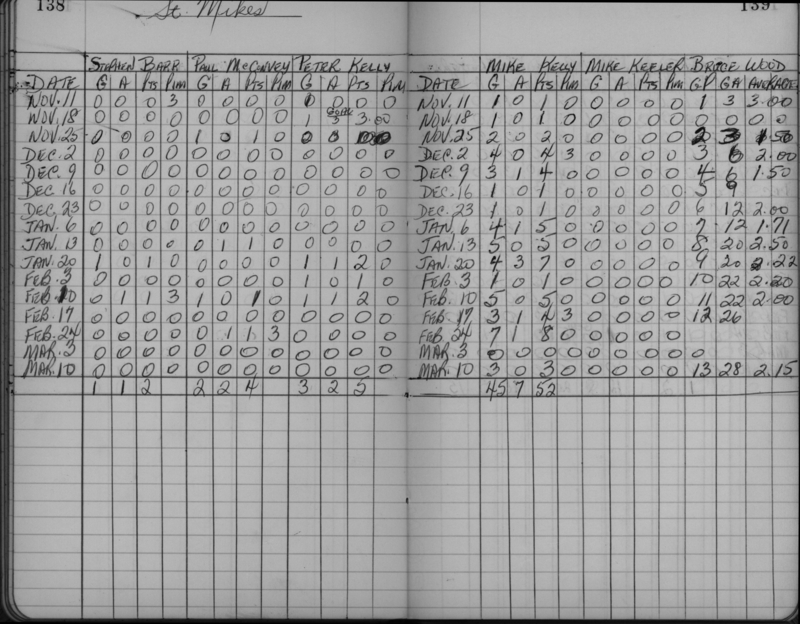 138 St. Mikes 139
STEPHEN BARR PAUL McGINVEY PETER KELLY MIKE KELLY MIKE KEELER BRUCE WOOD
DATE G A PTS PIM G A PTS PIM G A PTS PIM DATE G A PTS PIM G A PTS PIM GP GA AVERAGE
NOV. 11 0 0 0 3 0 0 0 0 0 0 0 NOV. 11 1 0 1 0 0 0 0 0 1 3 3.00
NOV. 18 0 0 0 0 0 0 0 0 1 3 3.00 NOV. 18 1 0 1 0 0 0 0 0
NOV. 25 0 0 0 0 1 0 1 0 0 NOV. 25 2 0 2 0 0 0 0 0 2 3 1.50
DEC. 2 0 0 0 0 0 0 0 0 0 0 0 0 DEC. 2 4 0 4 3 0 0 0 0 3 6 2.00
DEC. 9 0 0 0 0 0 0 0 0 0 0 0 0 DEC. 9 3 1 4 0 0 0 0 0 4 6 1.50
DEC 16 0 0 0 0 0 0 0 0 0 0 0 0 DEC. 16 1 0 1 0 0 0 0 0 5 9
DEC. 23 0 0 0 0 0 0 0 0 0 0 0 0 DEC. 23 1 0 1 0 0 0 0 0 6 12 2.00
JAN. 6 0 0 0 0 0 0 0 0 0 0 0 0 JAN. 6 4 1 5 0 0 0 0 0 7 12 1.71
JAN. 13 0 0 0 0 0 1 1 0 0 0 0 0 JAN. 13 5 0 5 0 0 0 0 0 8 20 2.50
JAN. 20 1 0 1 0 0 0 0 0 1 1 2 0 JAN. 20 4 3 7 0 0 0 0 0 9 20 2.22
FEB. 3 0 0 0 0 0 0 0 0 1 0 1 0 FEB. 3 1 0 1 0 0 0 0 0 10 22 2.20
FEB 10 0 1 1 3 1 0 1 0 1 1 2 0 FEB. 10 5 0 5 0 0 0 0 0 11 22 2.00
FEB. 17 0 0 0 0 0 0 0 0 0 0 0 0 FEB. 17 3 1 4 3 0 0 0 0 12 26
FEB. 24 0 0 0 0 0 1 1 3 0 0 0 0 FEB. 24 7 1 8 0 0 0 0 0
MAR. 3 0 0 0 0 0 0 0 0 0 0 0 0 MAR. 3 0 0 0 0 0 0 0 0 0
MAR. 10 0 0 0 0 0 0 0 0 0 0 0 0 MAR. 10 3 0 3 0 0 0 0 0 13 28 2.15
1 1 2 2 2 4 3 2 5 45 7 52